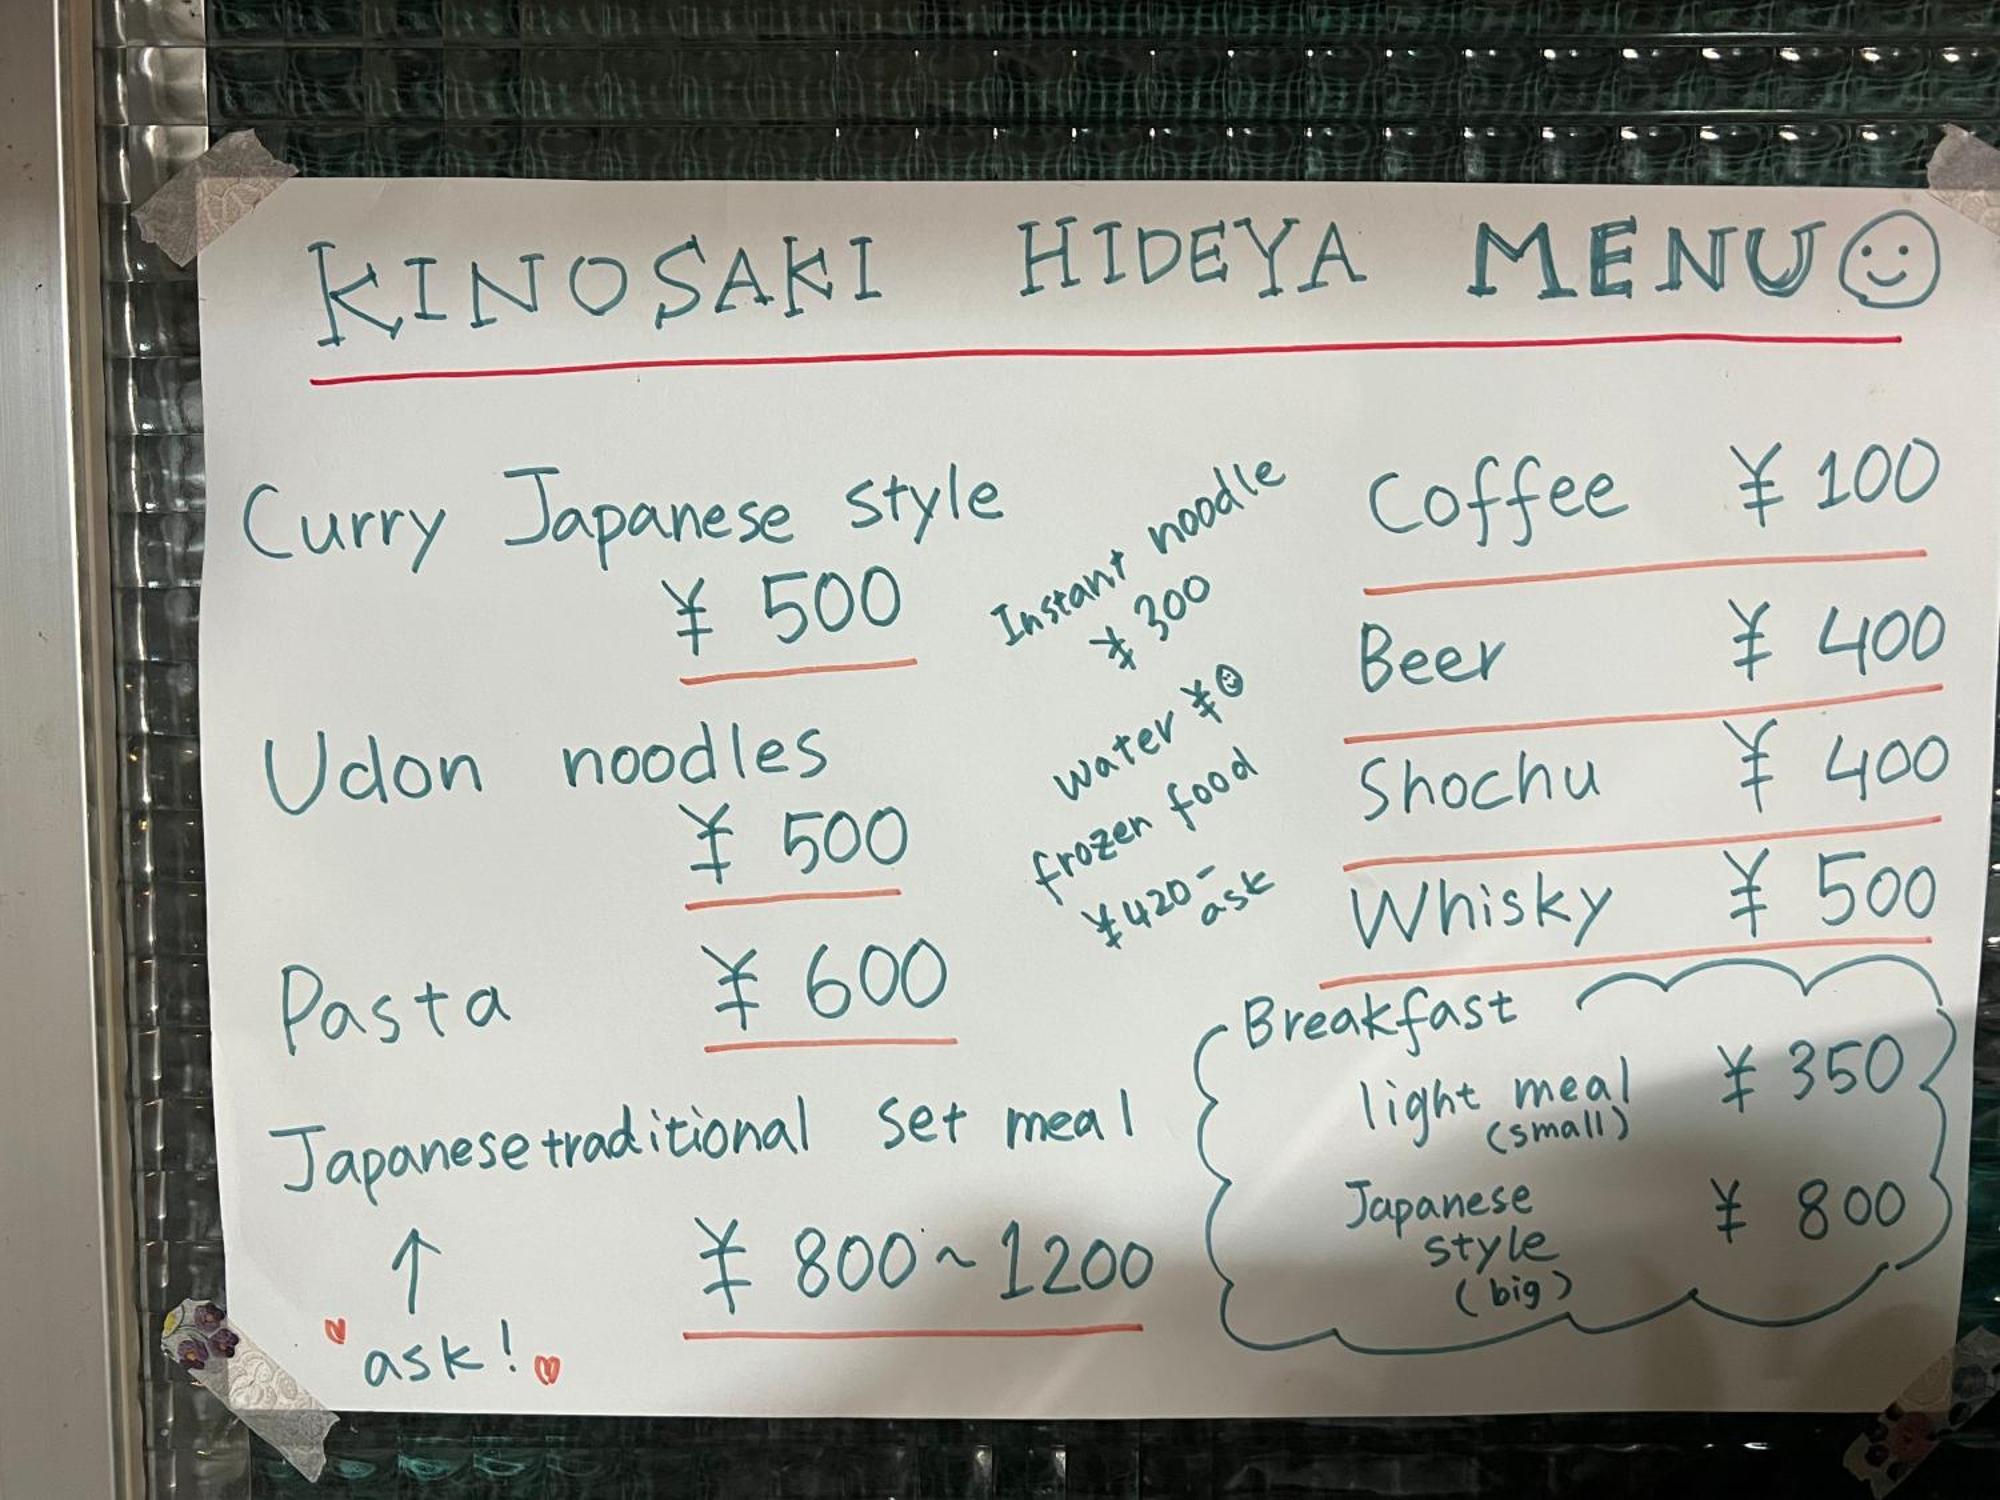 KINOSAKI HIDEYA MENU
Curry Japanese style
¥ 500
Udon noodles
¥ 500
Pasta ¥ 600
Japanese traditional set meal
¥ 800~1200
↑
ask!
Instant noodle
¥ 300
water ¥0
frozen food
¥420-
ask
Coffee ¥ 100
Beer ¥ 400
Shochu ¥ 400
Whisky ¥ 500
Breakfast
light meal ¥ 350
(small)
Japanese ¥ 800
style
(big)